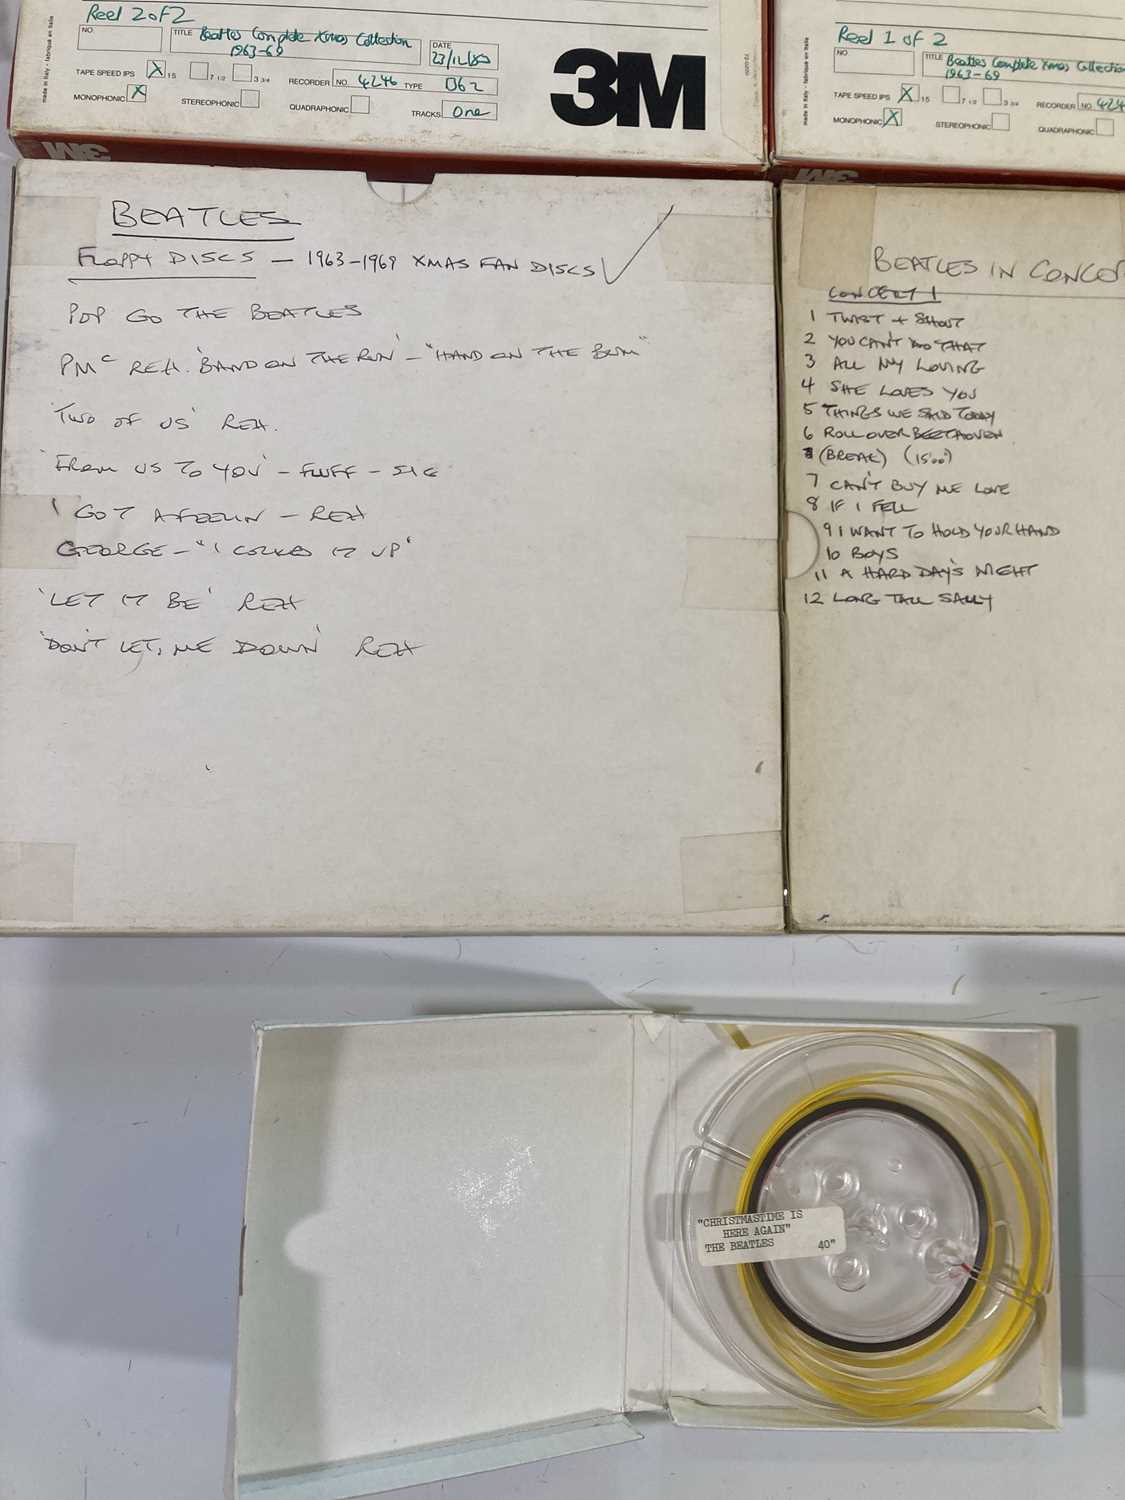 Reel 2 of 2
NO.
TITLE Beatles Complete Xmas Collection
1963-69
DATE
23/12/80
TAPE SPEED IPS X 15 7 1/2 3 3/4
RECORDER NO. 4246 TYPE B62
MONOPHONIC X STEREOPHONIC QUADRAPHONIC TRACKS One
made in Italy - fabriqué en Italie
3M
Reel 1 of 2
NO
TITLE Beatles Complete Xmas Collection
1963-69
TAPE SPEED IPS X 15 7 1/2 3 3/4
RECORDER NO. 424
MONOPHONIC X STEREOPHONIC QUADRAPHONIC
made in Italy - fabriqué en Italie
3M
3M
BEATLES
FLOPPY DISCS - 1963-1969 XMAS FAN DISCS
POP GO THE BEATLES
PMc REH. 'BAND ON THE RUN' - "HAND ON THE BUM"
'TWO OF US' REH.
'FROM US TO YOU' - FLUFF - SIG
I GOT A FEELIN - REH
GEORGE - "I COCKED IT UP"
'LET IT BE' REH
'DON'T LET, ME DOWN' REH
BEATLES IN CONCER
CONCERT 1
1 TWIST + SHOUT
2 YOU CAN'T DO THAT
3 ALL MY LOVING
4 SHE LOVES YOU
5 THINGS WE SAID TODAY
6 ROLL OVER BEETHOVEN
(BREAK) (15'00")
7 CAN'T BUY ME LOVE
8 IF I FELL
9 I WANT TO HOLD YOUR HAND
10 BOYS
11 A HARD DAY'S NIGHT
12 LONG TALL SALLY
"CHRISTMASTIME IS
HERE AGAIN"
THE BEATLES 40"